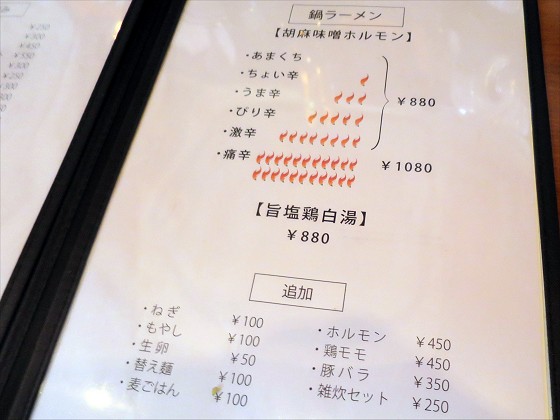 み
¥250
¥300
¥450
¥550
¥300
鍋ラーメン
【胡麻味噌ホルモン】
・あまくち
・ちょい辛
・うま辛
・ぴり辛
・激辛
¥880
・痛辛
¥1080
【旨塩鶏白湯】
¥880
追加
・ねぎ ¥100
・もやし ¥100
・生卵 ¥50
・替え麺 ¥100
・麦ごはん ¥100
・ホルモン ¥450
・鶏モモ ¥450
・豚バラ ¥350
・雑炊セット ¥250